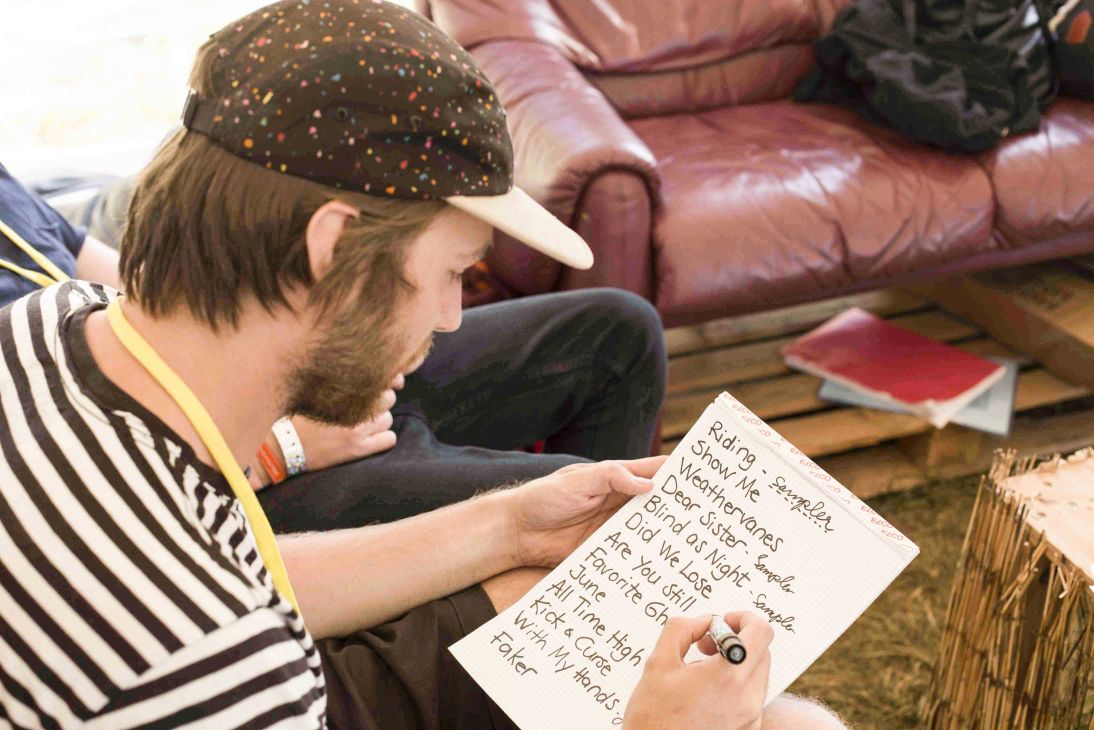 Riding - Sampler
Show Me
Weathervanes
Dear Sister - Sampler
Blind as Night - Sampler
Did We Lose
Are You Still
Favorite Gh
June
All Time High
Kick & Curse
With My Hands -
Faker